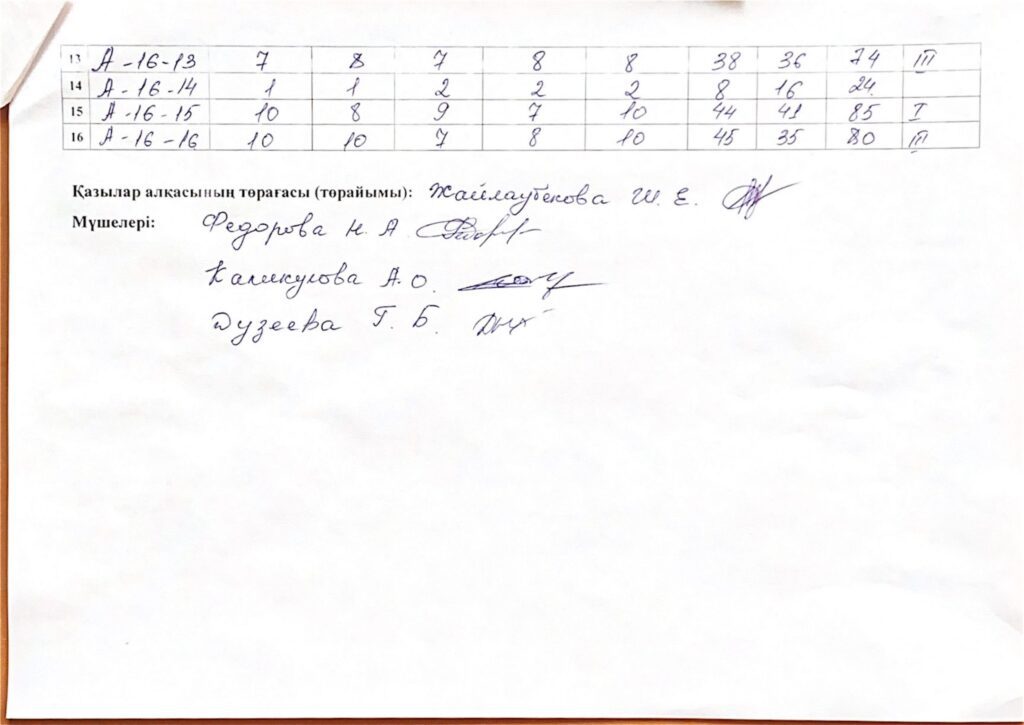 13 А-16-13 7 8 7 8 8 38 36 74 III
14 А-16-14 1 1 2 2 2 8 16 24
15 А-16-15 10 8 9 7 10 44 41 85 I
16 А-16-16 10 10 7 8 10 45 35 80 III
Қазылар алқасының төрағасы (төрайымы): Жайлаубекова Ш. Е.
Мүшелері: Федорова Н. А
Каликулова А.О.
Дузеева Г. Б.